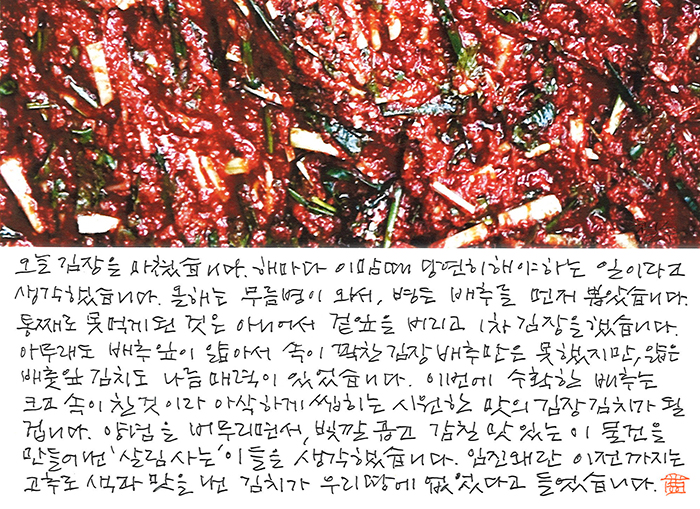 오늘 김장을 마쳤습니다. 해마다 이맘때 당연히해야하는 일이라고
생각했습니다. 올해는 무름병이 와서, 병든 배추를 먼저 뽑았습니다.
통째로 못먹게된 것은 아니어서 겉잎을 버리고 1차 김장을했습니다.
아무래도 배추잎이 얇아서 속이 꽉찬 김장 배추만은 못했지만, 얇은
배춧잎 김치도 나름 매력이 있었습니다. 이번에 수확한 배추는
크고 속이 찬것 이라 아삭하게 씹히는 시원한 맛의 김장 김치가 될
겁니다. 양념을 버무리면서, 빛깔 곱고 감칠 맛 있는 이 물건을
만들어낸 '살림 사는' 이들을 생각했습니다. 임진왜란 이전 까지는
고추로 색과 맛을 낸 김치가 우리땅에 없었다고 들었습니다.